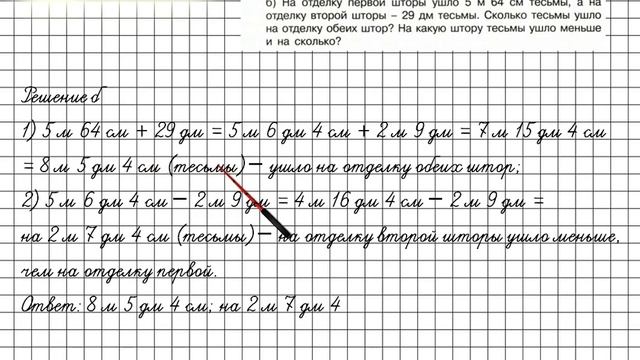 б) На отделку первой шторы ушло 5 м 64 см тесьмы, а на
отделку второй шторы – 29 дм тесьмы. Сколько тесьмы ушло
на отделку обеих штор? На какую штору тесьмы ушло меньше
и на сколько?
Решение б
1) 5 м 64 см + 29 дм = 5 м 6 дм 4 см + 2 м 9 дм = 7 м 15 дм 4 см
= 8 м 5 дм 4 см (тесьмы) – ушло на отделку обеих штор;
2) 5 м 6 дм 4 см – 2 м 9 дм = 4 м 16 дм 4 см – 2 м 9 дм =
на 2 м 7 дм 4 см (тесьмы) – на отделку второй шторы ушло меньше,
чем на отделку первой.
Ответ: 8 м 5 дм 4 см; на 2 м 7 дм 4